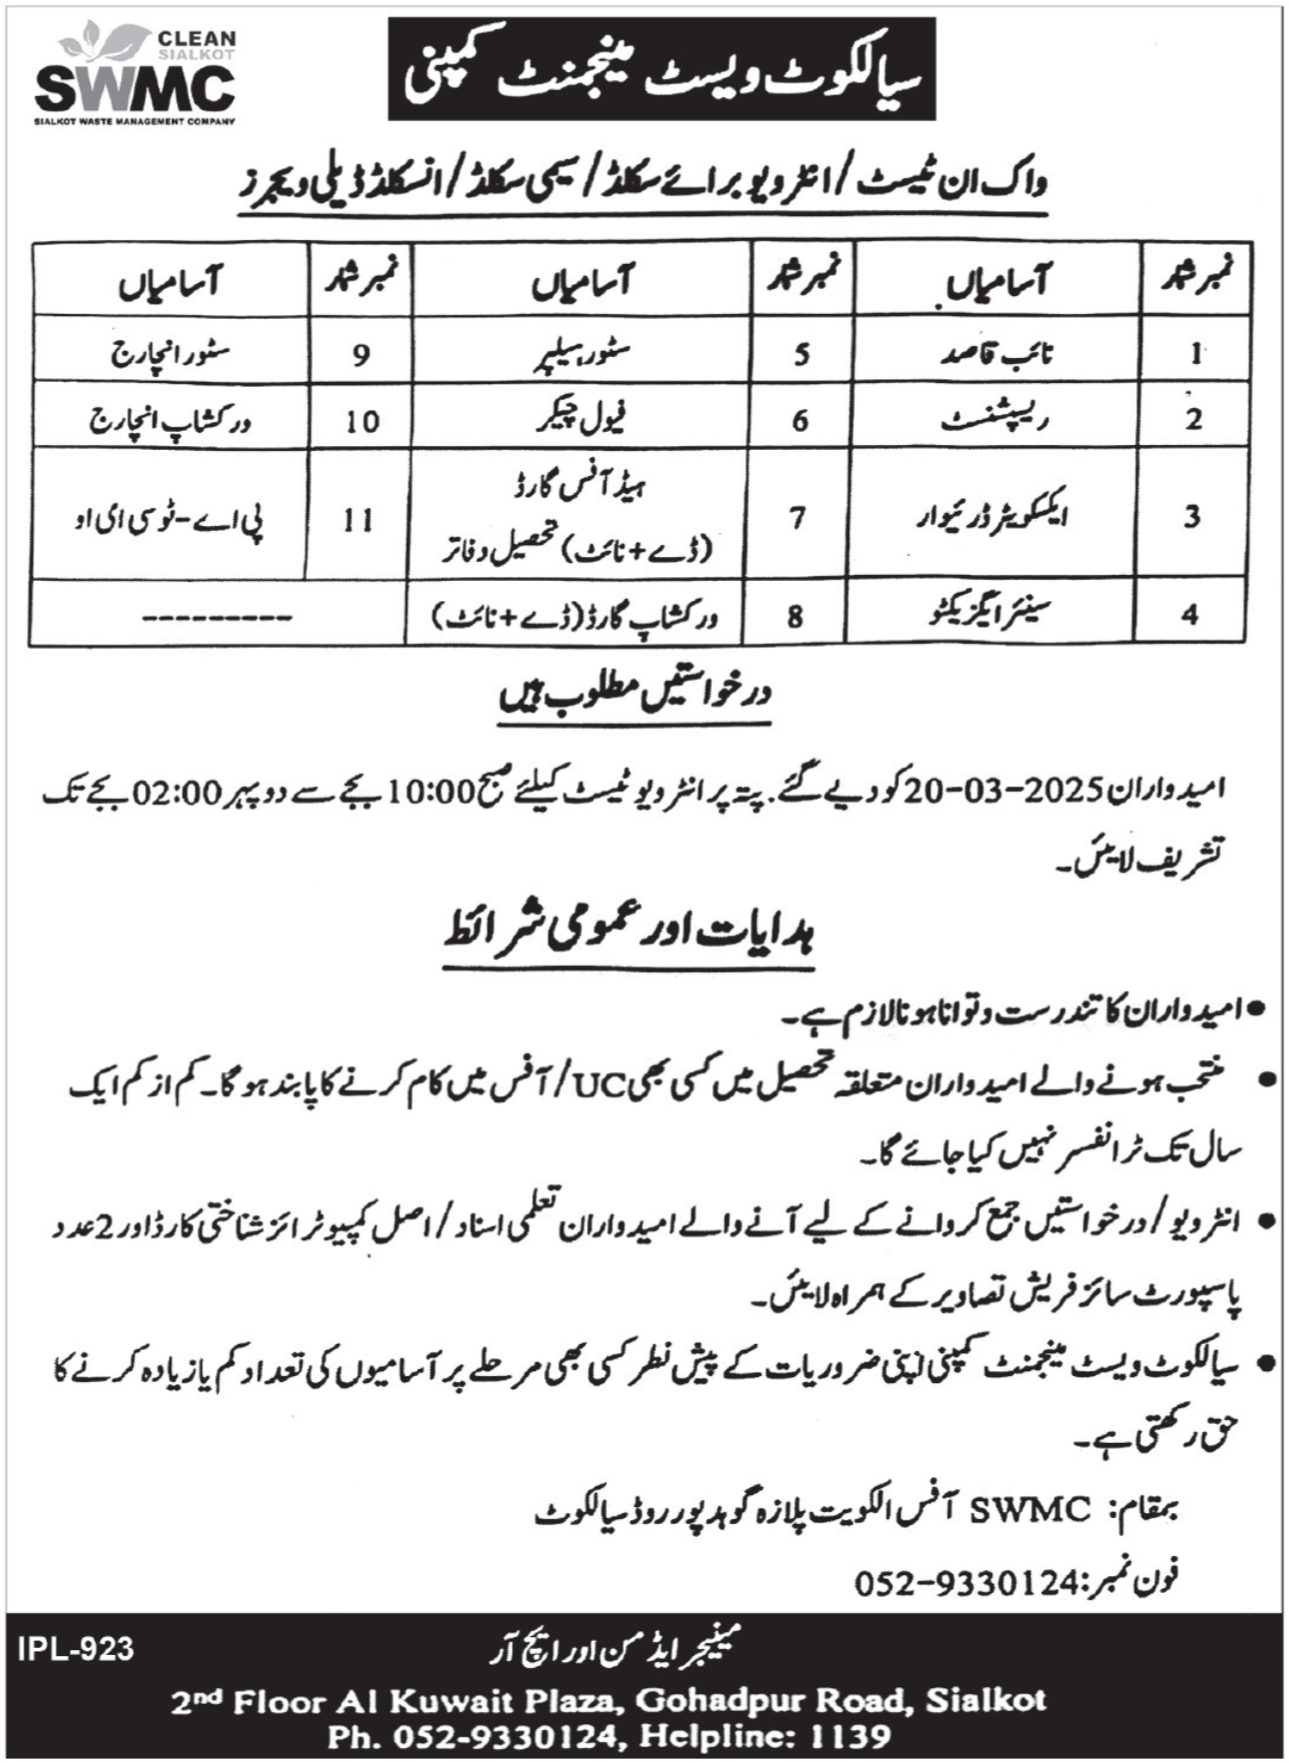 CLEAN
SIALKOT
SWMC
SIALKOT WASTE MANAGEMENT COMPANY
سیالکوٹ ویسٹ مینجمنٹ کمپنی
واک ان ٹیسٹ / انٹرویو برائے سکلڈ / سیمی سکلڈ / انسکلڈ ڈیلی ویجرز
نمبر شمار آسامیاں نمبر شمار آسامیاں نمبر شمار آسامیاں
1 نائب قاصد 5 سٹور ہیلپر 9 سٹور انچارج
2 ریسپشنسٹ 6 فیول چیکر 10 ورکشاپ انچارج
3 ایکسکویٹر ڈرائیوار 7 ہیڈ آفس گارڈ
(ڈے + نائٹ) تحصیل دفاتر 11 پی اے - ٹو سی ای او
4 سینئر ایگزیکٹو 8 ورکشاپ گارڈ (ڈے + نائٹ) ---------
درخواستیں مطلوب ہیں
امیدواران 2025-03-20 کو دیے گئے. پتہ پر انٹرویو ٹیسٹ کیلئے صبح 10:00 بجے سے دوپہر 02:00 بجے تک
تشریف لائیں۔
ہدایات اور عمومی شرائط
• امیدواران کا تندرست و توانا ہونا لازم ہے۔
• منتخب ہونے والے امیدواران متعلقہ تحصیل میں کسی بھی UC / آفس میں کام کرنے کا پابند ہو گا۔ کم از کم ایک
سال تک ٹرانفسر نہیں کیا جائے گا۔
• انٹرویو / درخواستیں جمع کروانے کے لیے آنے والے امیدواران تعلمی اسناد / اصل کمپیوٹرائز شناختی کارڈ اور 2 عدد
پاسپورٹ سائز فریش تصاویر کے ہمراہ لائیں۔
• سیالکوٹ ویسٹ مینجمنٹ کمپنی اپنی ضروریات کے پیش نظر کسی بھی مرحلے پر آسامیوں کی تعداد کم یا زیادہ کرنے کا
حق رکھتی ہے۔
بمقام: SWMC آفس الکویت پلازہ گوہدپور روڈ سیالکوٹ
فون نمبر: 052-9330124
مینیجر ایڈمن اور ایچ آر
IPL-923
2nd Floor Al Kuwait Plaza, Gohadpur Road, Sialkot
Ph. 052-9330124, Helpline: 1139